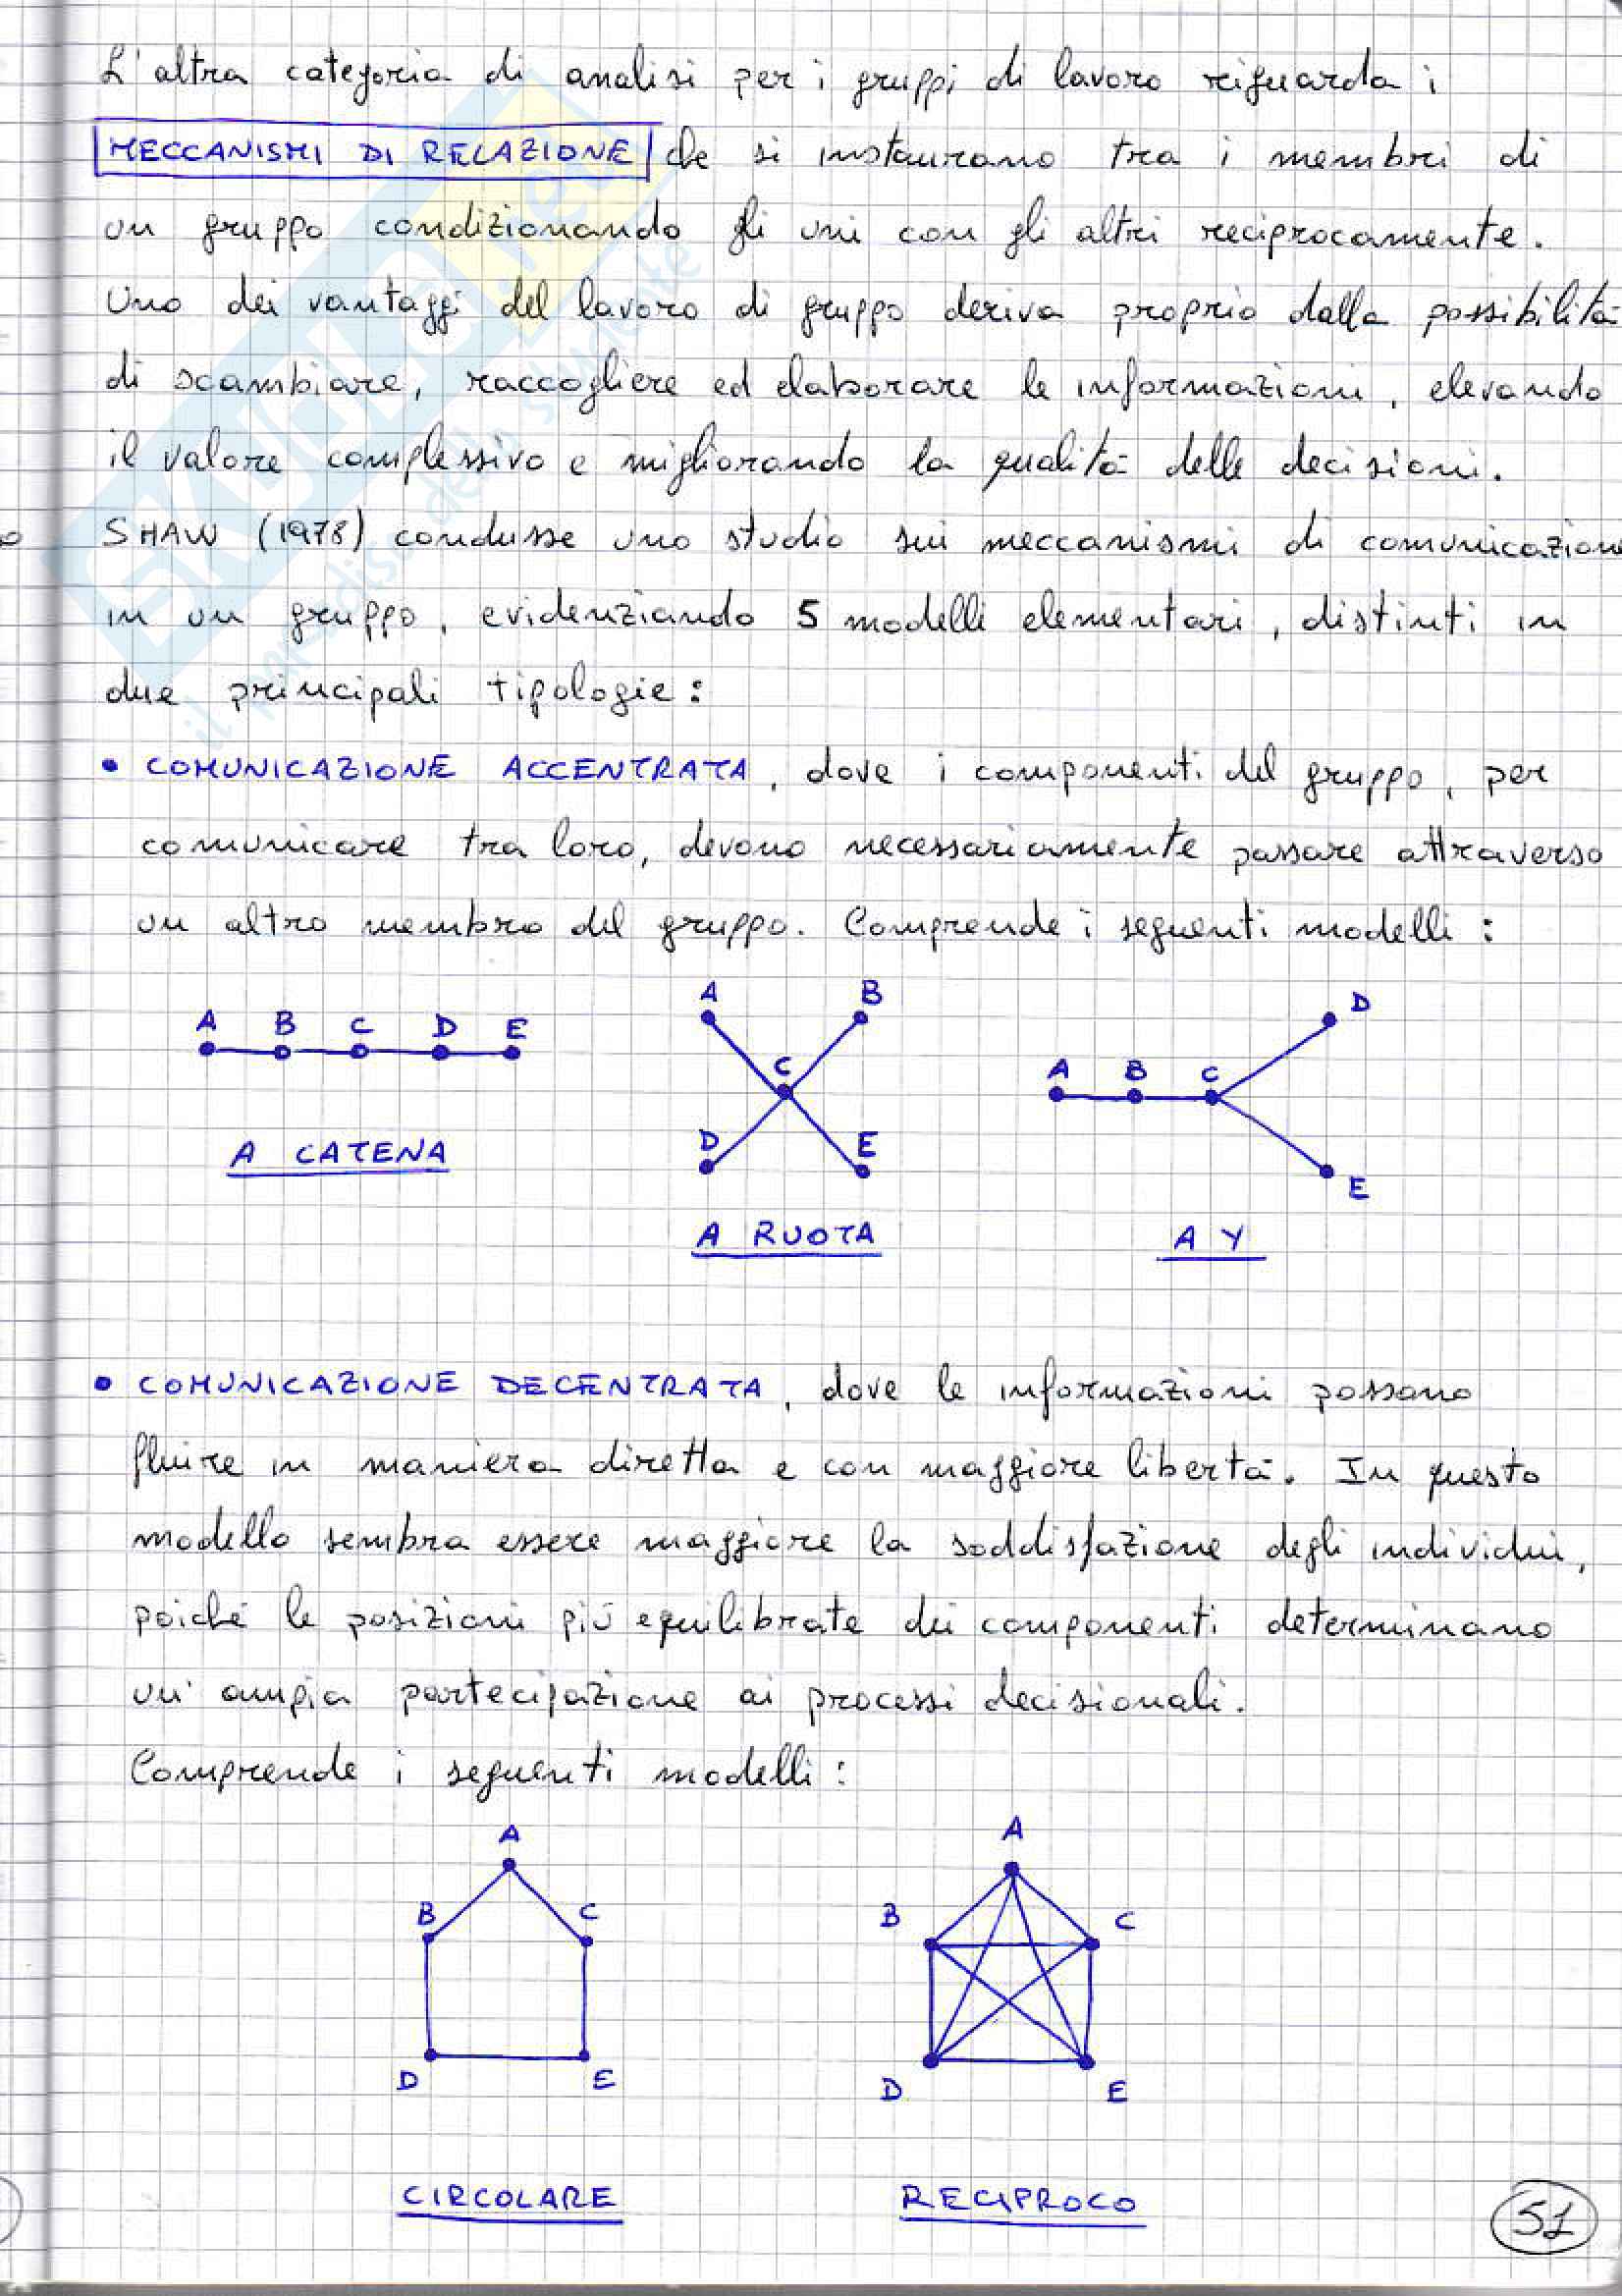 L'altra categoria di analisi per i gruppi di lavoro riguarda i
MECCANISMI DI RELAZIONE che si instaurano tra i membri di
un gruppo condizionando gli uni con gli altri reciprocamente.
Uno dei vantaggi del lavoro di gruppo deriva proprio dalla possibilità
di scambiare, raccogliere ed elaborare le informazioni, elevando
il valore complessivo e migliorando la qualità delle decisioni.
SHAW (1978) condusse uno studio sui meccanismi di comunicazione
in un gruppo, evidenziando 5 modelli elementari, distinti in
due principali tipologie:
• COMUNICAZIONE ACCENTRATA, dove i componenti del gruppo, per
comunicare tra loro, devono necessariamente passare attraverso
un altro membro del gruppo. Comprende i seguenti modelli:
A B C D E
A CATENA
A B
C
D E
A RUOTA
D
A B C
E
A Y
• COMUNICAZIONE DECENTRATA, dove le informazioni possono
fluire in maniera diretta e con maggiore libertà. In questo
modello sembra essere maggiore la soddisfazione degli individui,
poiché le posizioni più equilibrate dei componenti determinano
un'ampia partecipazione ai processi decisionali.
Comprende i seguenti modelli:
A
B C
D E
CIRCOLARE
A
B C
D E
RECIPROCO
51
SKUOLA.net
il paradiso dello studente